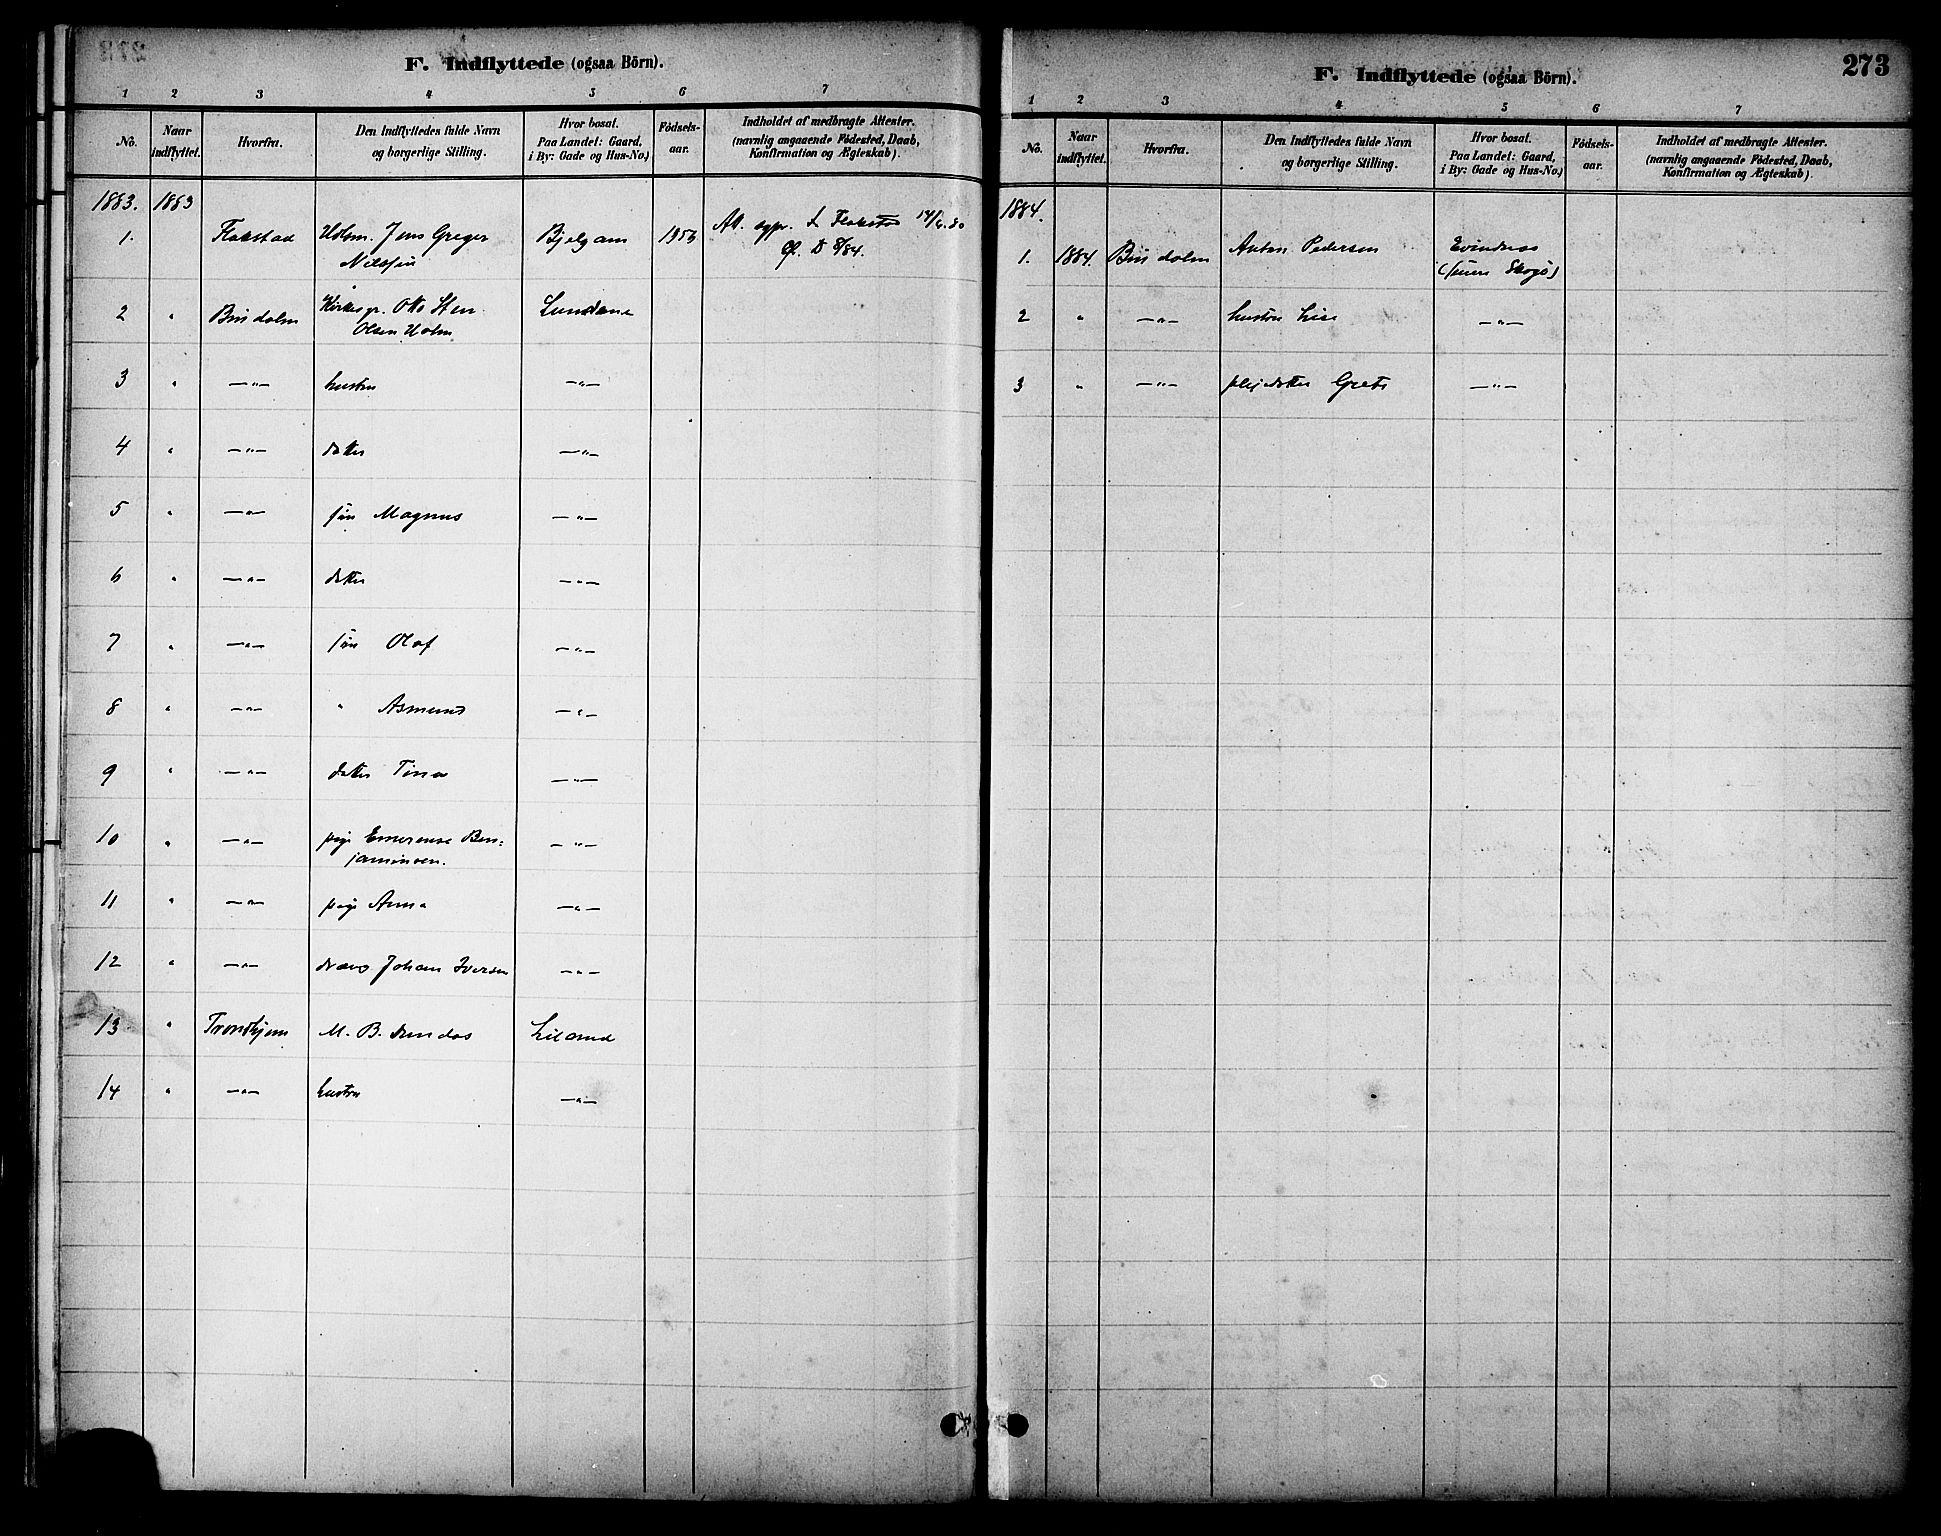 F. Indflyttede (ogsaa Börn).
1 2 3 4 5 6 7
No. Naar indflyttet. Hvorfra. Den Indflyttedes fulde Navn og borgerlige Stilling. Hvor bosat. Paa Landet: Gaard, i By: Gade og Hus-No.) Födsels-aar. Indholdet af medbragte Attester. (navnlig angaaende Födested, Daab, Konfirmation og Ægteskab).
1883. 1883
1. Flakstad Udsm. Jens Greger Bjelgam 1853 Att. Flakstad 14/6.80
Nilssen 8/84.
2 " Bindalen Kirkesgr. Otto Sten Lundene
Olsen Holm
3 " —"— hustru —"—
4 " —"— datter —"—
5 " —"— søn Magnus —"—
6 " —"— datter —"—
7 " —"— søn Olaf —"—
8 " —"— " Asmund —"—
9 " —"— datter Tina —"—
10 " —"— pige Emerense Ben-
jaminsen. —"—
11 " —"— pige Anna —"—
12 " —"— dreng Johan Iversen —"—
13 " Trondhjem M. B. Liland
14 " —"— hustru —"—
F. Indflyttede (ogsaa Börn).
273
1 2 3 4 5 6 7
No. Naar indflyttet. Hvorfra. Den Indflyttedes fulde Navn og borgerlige Stilling. Hvor bosat. Paa Landet: Gaard, i By: Gade og Hus-No.) Födsels-aar. Indholdet af medbragte Attester. (navnlig angaaende Födested, Daab, Konfirmation og Ægteskab).
1884.
1. 1884. Bindalen Anton Pedersen Evindnes
2 " —"— hustru Lise —"—
3 " —"— plejedatter Grete —"—